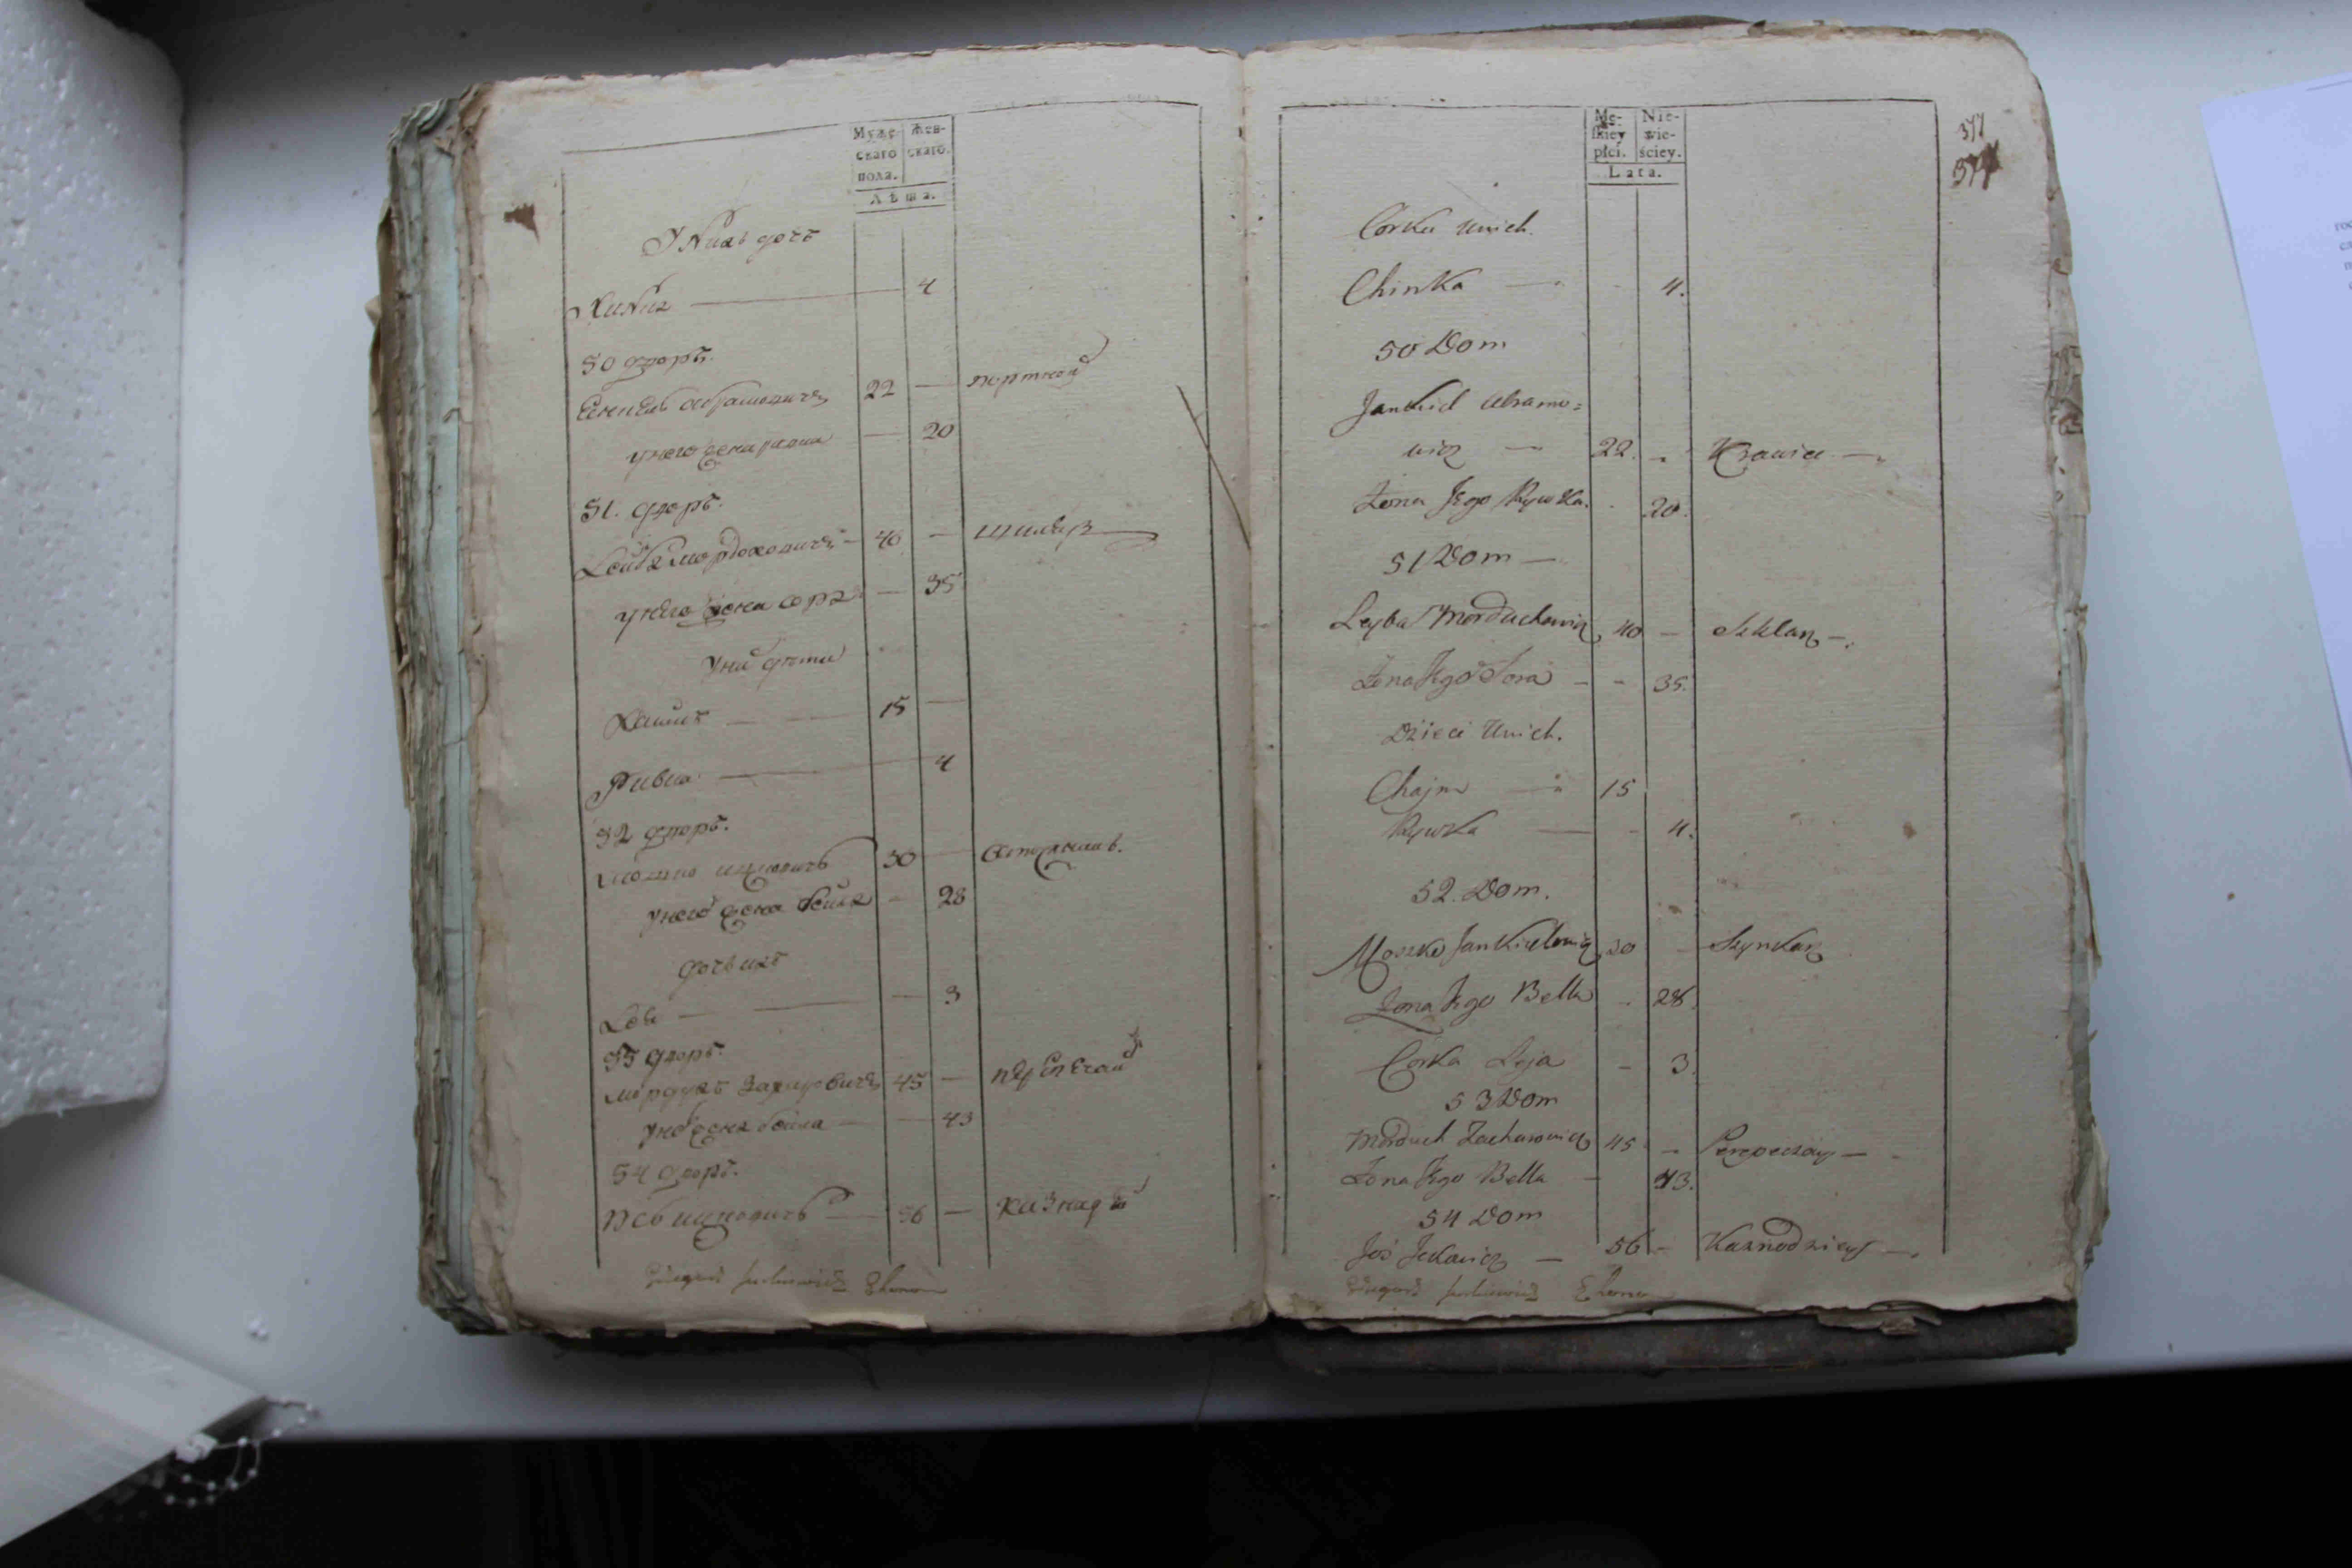 Муже-
скаго
пола.
Жен-
скаго.
Лѣта.
У нихъ дочь
Хинка 4
50 дворъ.
Енкель Абрамовичъ 22 — портной
у него жена 20
51. дворъ.
Лейба Мордоховичъ — 40 —
у него жена Сора — 35
У них дети
Хаимъ — 15 —
Ривка — 4
52 дворъ.
Мошко 30
у него жена Бейла — 28
дочь ихъ
Лея — 3
53 дворъ.
Мордухъ Захаровичъ 45 — перепечай
у него жена Бейла — 43
54 дворъ.
56 — казнадѣй
Mę-
skiey
płci.
Nie-
wie-
ściey.
Lata.
377
Corka Unich.
Chinka — 4.
50 Dom
Jankiel Abramo=
wicz — 22. Krawiec —
Żona Jego Rywka. 20.
51 Dom —
Leyba Morduchowicz 40 — Szklarz —
Żona Jego Sora — - 35.
Dzieci Unich.
Chajm — 15
Rywka — - 4.
52. Dom.
Moszko Jankielowicz 30 - Szynkarz
Żona Jego Bella - 28.
Corka Leja - 3.
53 Dom
Morduch Zacharowicz 45 - Perepeczay —
Żona Jego Bella - 43.
54 Dom
Joś Jckowicz — 56 - Kaznodzieja —